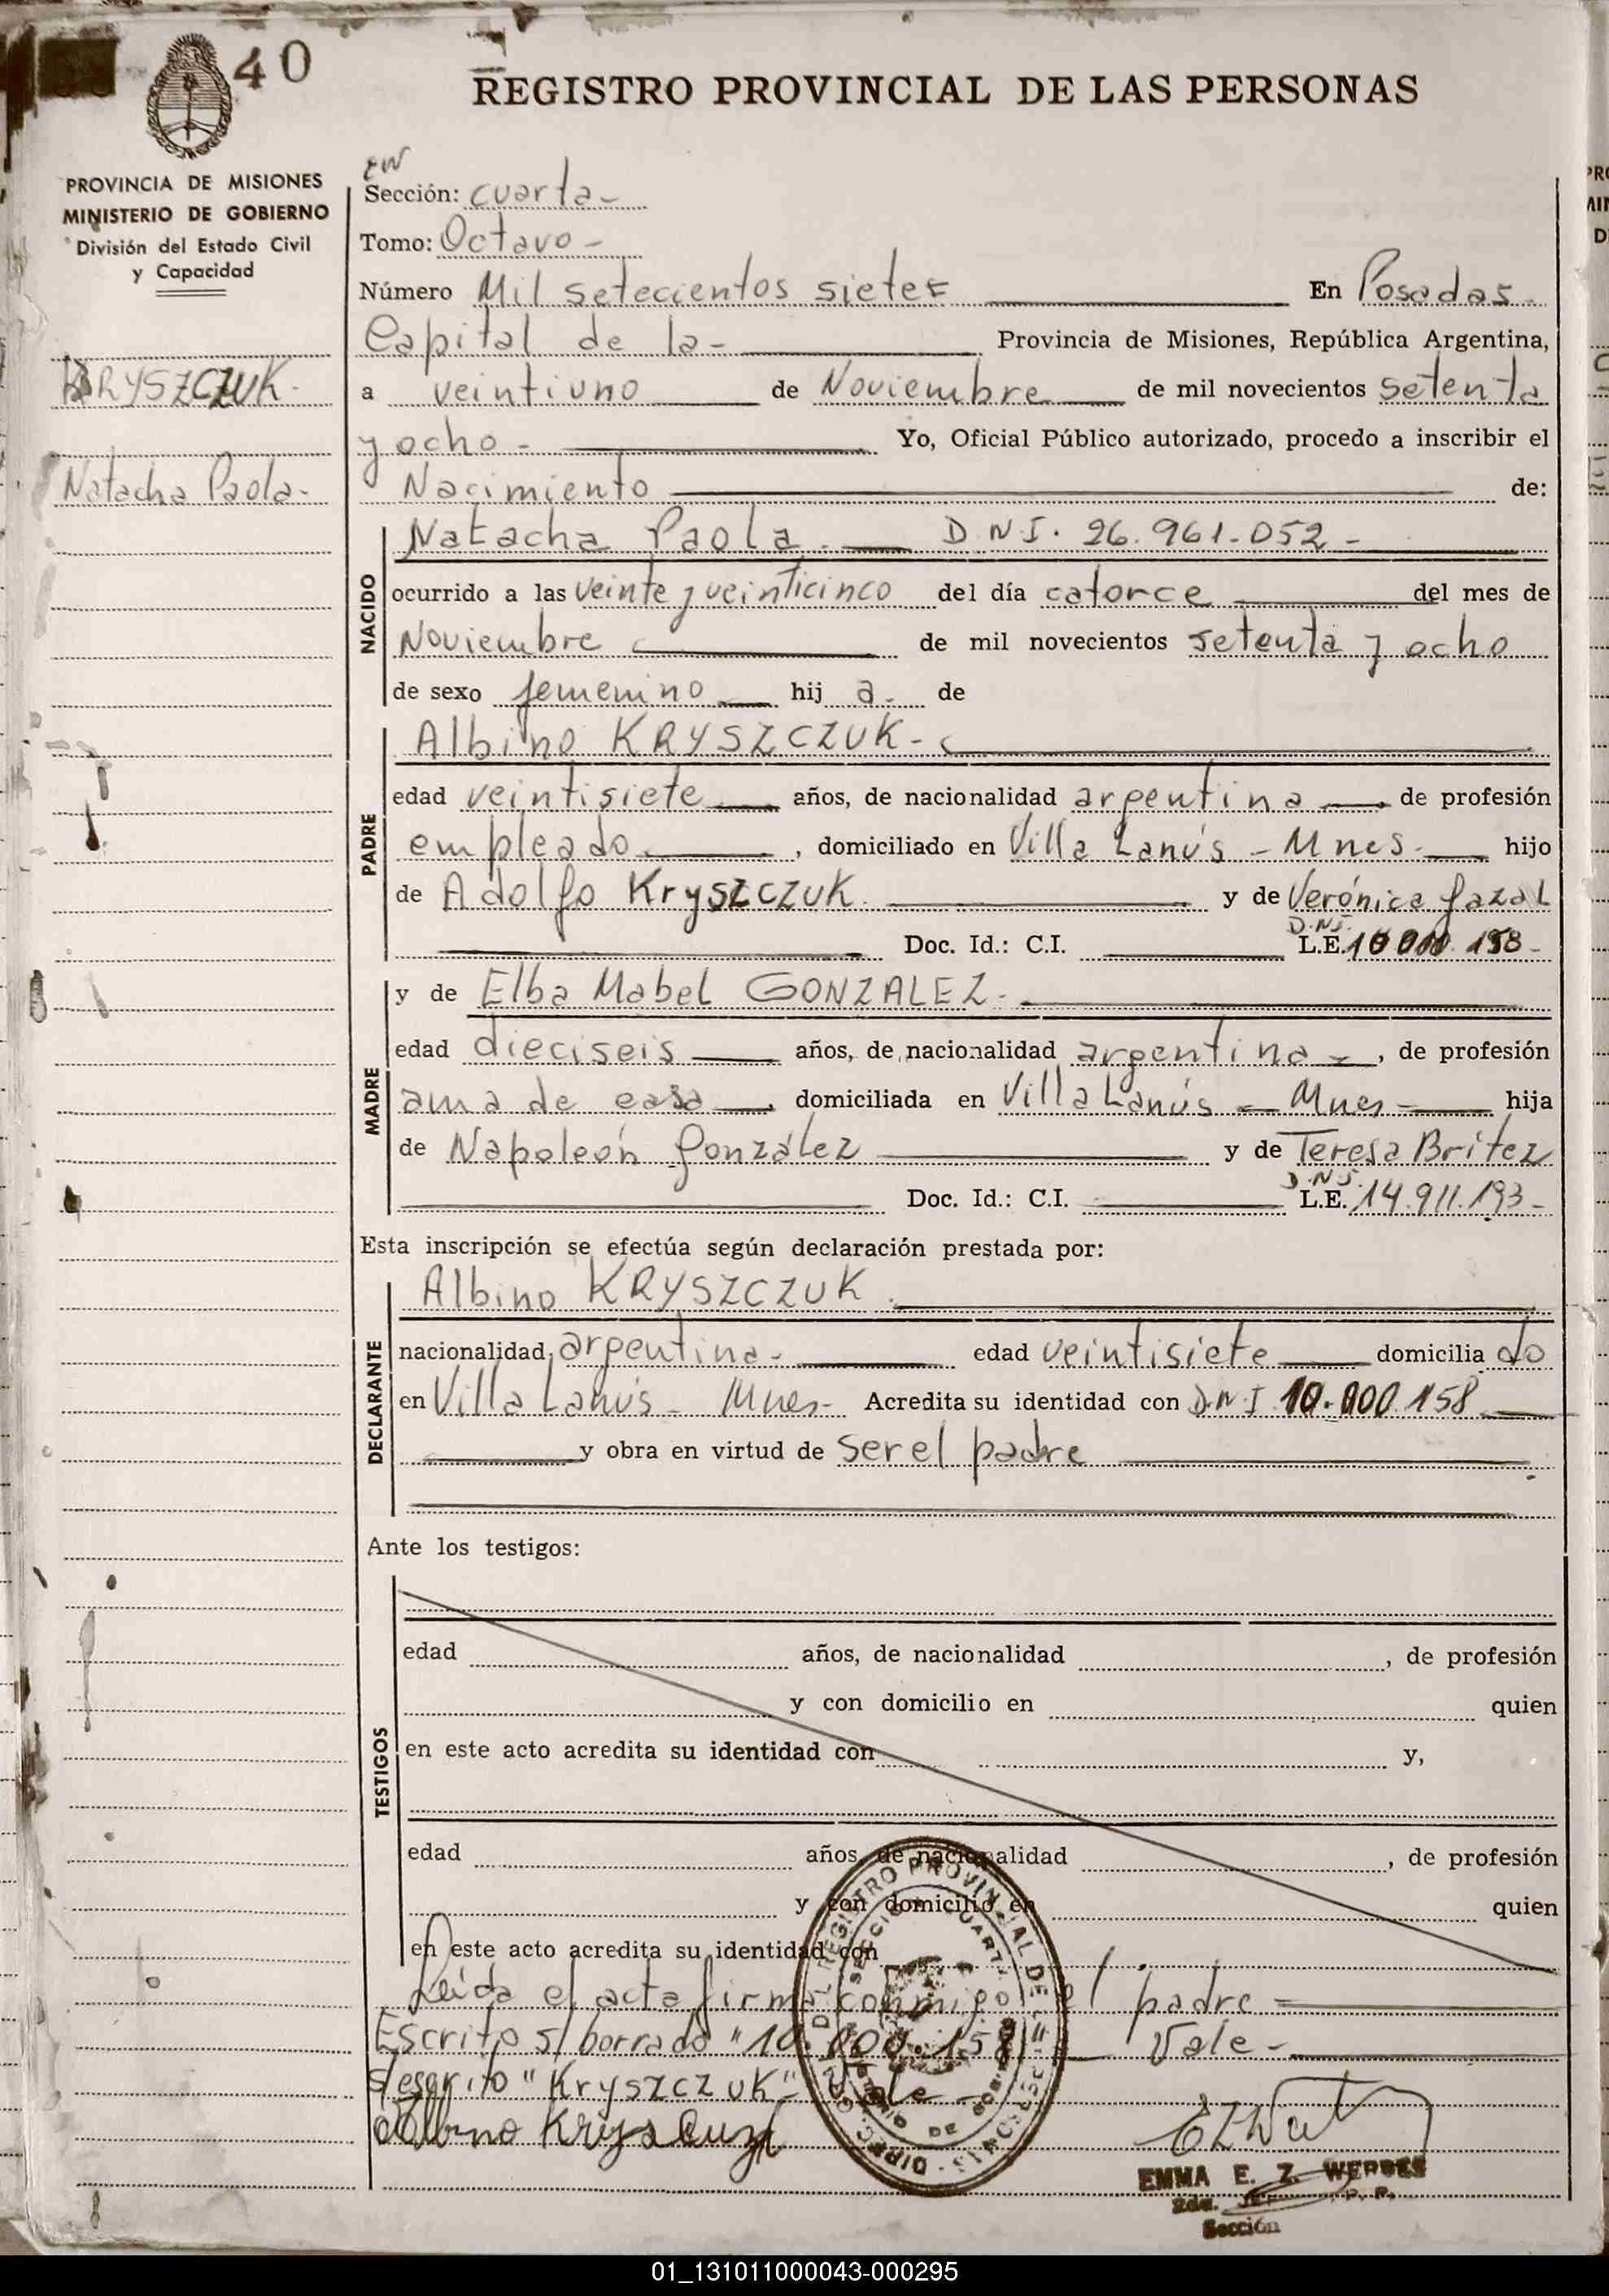 40
REGISTRO PROVINCIAL DE LAS PERSONAS
PROVINCIA DE MISIONES
MINISTERIO DE GOBIERNO
División del Estado Civil
y Capacidad
KRYSZCZUK-
Natacha Paola-
Sección: cuarta-
Tomo: Octavo-
Número Mil setecientos siete En Posadas-
Capital de la- Provincia de Misiones, República Argentina,
a veintiuno de Noviembre de mil novecientos setenta
y ocho- Yo, Oficial Público autorizado, procedo a inscribir el
Nacimiento de:
NACIDO
Natacha Paola.- D.N.I. 26.961.052-
ocurrido a las veinte y veinticinco del día catorce del mes de
Noviembre de mil novecientos setenta y ocho
de sexo femenino hij a. de
PADRE
Albino KRYSZCZUK-
edad veintisiete años, de nacionalidad argentina de profesión
empleado , domiciliado en Villa Lanús - Mnes. hijo
de Adolfo Kryszczuk. y de Verónica Gazal
Doc. Id.: C.I. D.N.I. L.E. 10.000.158-
MADRE
y de Elba Mabel GONZALEZ.
edad dieciseis años, de nacionalidad argentina , de profesión
ama de casa , domiciliada en Villa Lanús - Mnes hija
de Napoleón González y de Teresa Britez
Doc. Id.: C.I. D.N.I. L.E. 14.911.193-
Esta inscripción se efectúa según declaración prestada por:
DECLARANTE
Albino KRYSZCZUK.
nacionalidad argentina- edad veintisiete domicilia do
en Villa Lanús - Mnes- Acredita su identidad con D.N.I 10.000.158
y obra en virtud de ser el padre
Ante los testigos:
TESTIGOS
edad años, de nacionalidad , de profesión
y con domicilio en quien
en este acto acredita su identidad con y,
edad años, de nacionalidad , de profesión
y con domicilio en quien
en este acto acredita su identidad con
Leída el acta firma conmigo el padre-
Escrito s/ borrado "10.000.158" Vale-
"Kryszczuk" Vale-
Albino
DIREC. GRAL. DEL REGISTRO PROVINCIAL DE LAS PERSONAS
SECCION CUARTA
MINISTERIO DE GOBIERNO
EMMA E. Z. WERBES
2da. JEF R. P. P.
Sección
01_131011000043-000295